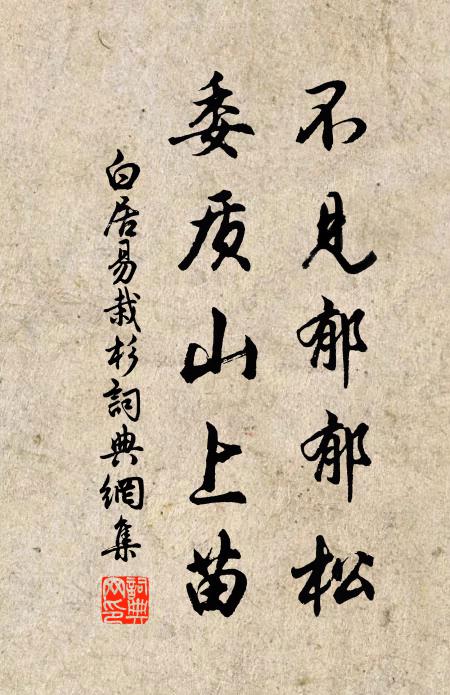 不见郁郁松
委质山上苗
白居易栽杉詞典網集
詞典
网印